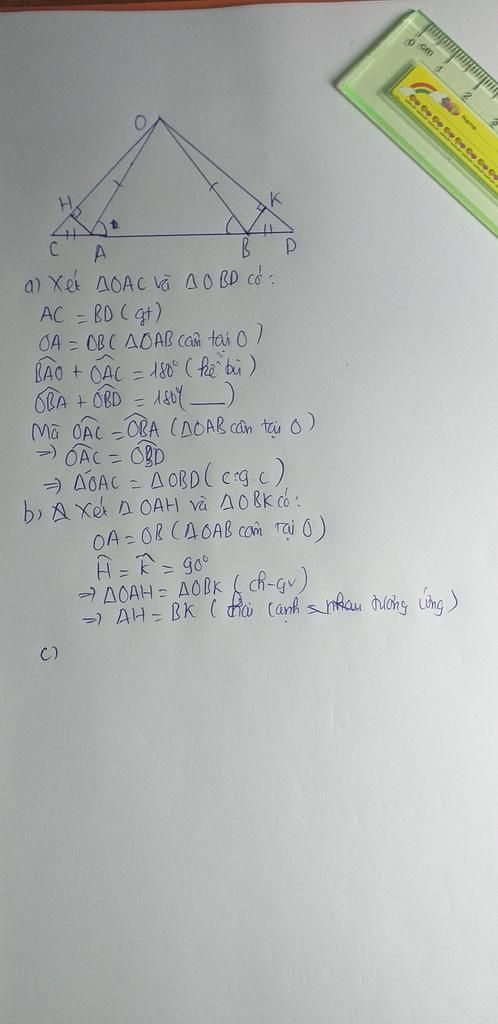 0 cm 1 2 3
Name
O
H K
C A B D
a) Xét ΔOAC và ΔOBD có:
AC = BD (gt)
OA = OB (ΔOAB cân tại O)
B̂AO + ÔAC = 180° (kề bù)
ÔBA + ÔBD = 180° (___)
Mà ÔAC = ÔBA (ΔOAB cân tại O)
=> ÔAC = ÔBD
=> ΔOAC = ΔOBD (c.g.c)
b) Xét ΔOAH và ΔOBK có:
OA = OB (ΔOAB cân tại O)
Ĥ = K̂ = 90°
=> ΔOAH = ΔOBK (ch-gv)
=> AH = BK (hai cạnh = nhau tương ứng)
c)